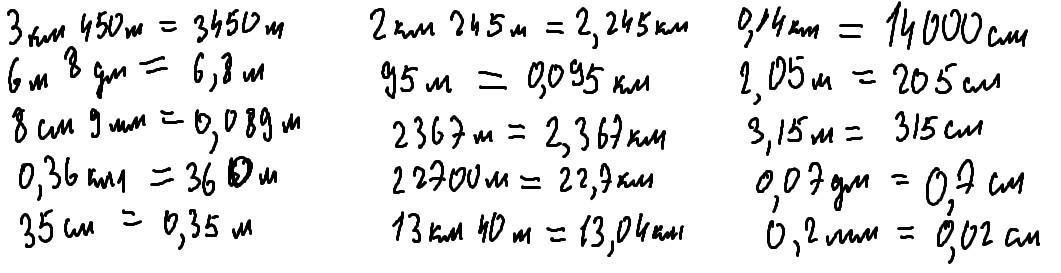 3км 450м = 3450м
6м 8дм = 6,8м
8см 9мм = 0,089м
0,36км = 360м
35см = 0,35м
2км 245м = 2,245км
95м = 0,095км
2367м = 2,367км
22700м = 22,7км
13км 40м = 13,04км
0,14км = 14000см
2,05м = 205см
3,15м = 315см
0,07дм = 0,7см
0,2мм = 0,02см